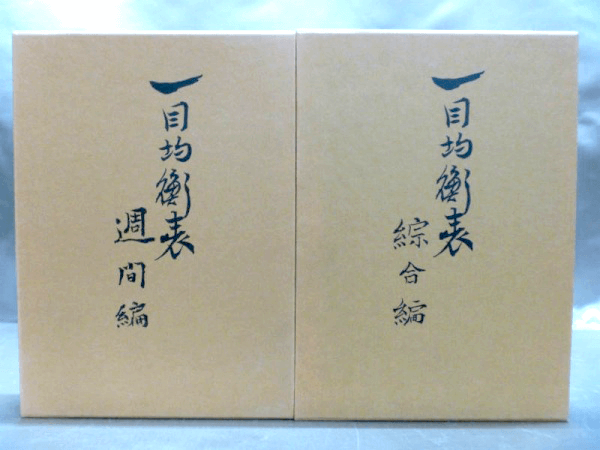 一目均衡表
週間編
一目均衡表
綜合編